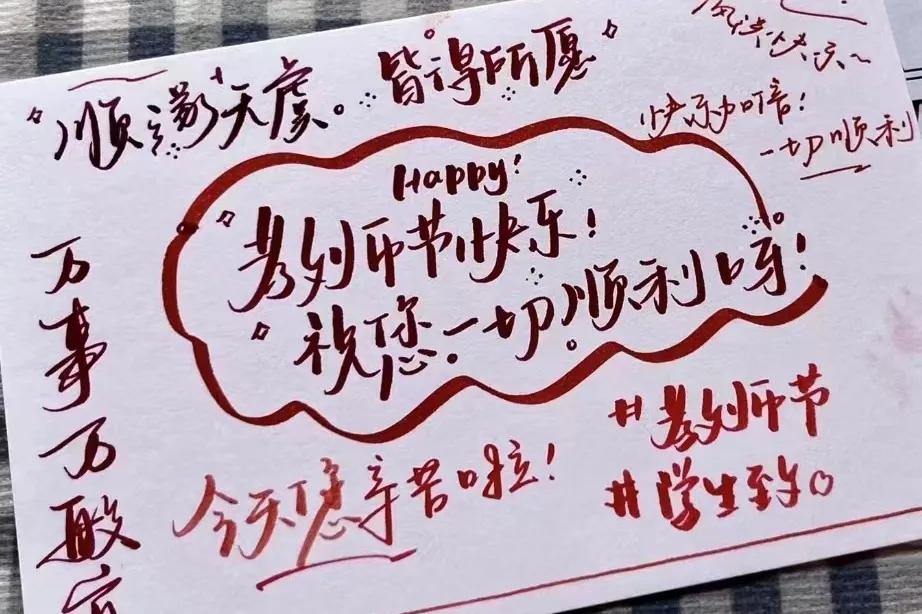 "顺遂无虞。皆得所愿"
快乐加倍!
一切顺利
Happy!
教师节快乐!
祝您一切顺利呀!
万事万般
今天您辛苦啦!
#教师节
#学生